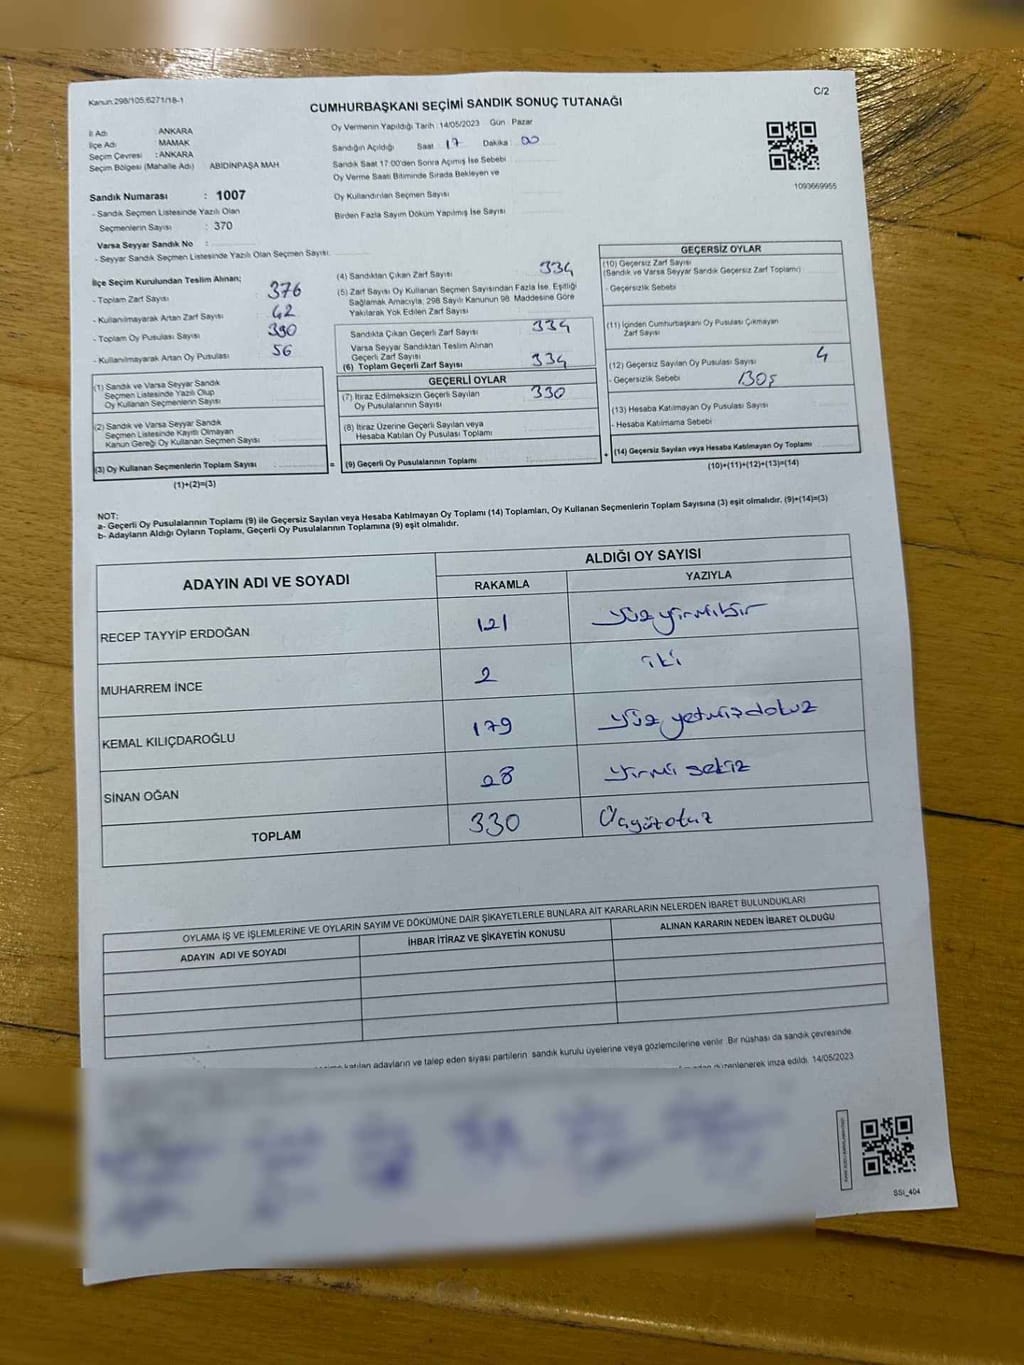 Kanun:298/105;6271/18-1
C/2
CUMHURBAŞKANI SEÇİMİ SANDIK SONUÇ TUTANAĞI
İl Adı : ANKARA
İlçe Adı : MAMAK
Seçim Çevresi : ANKARA
Seçim Bölgesi (Mahalle Adı) ABİDİNPAŞA MAH
Sandık Numarası : 1007
- Sandık Seçmen Listesinde Yazılı Olan
Seçmenlerin Sayısı : 370
Varsa Seyyar Sandık No :
- Seyyar Sandık Seçmen Listesinde Yazılı Olan Seçmen Sayısı:
Oy Vermenin Yapıldığı Tarih :14/05/2023 Gün Pazar
Sandığın Açıldığı Saat 17 Dakika 00
Sandık Saat 17:00'den Sonra Açımış İse Sebebi
Oy Verme Saati Bitiminde Sırada Bekleyen ve
Oy Kullandırılan Seçmen Sayısı
Birden Fazla Sayım Döküm Yapılmış İse Sayısı
1093669955
İlçe Seçim Kurulundan Teslim Alınan;
- Toplam Zarf Sayısı : 376
- Kullanılmayarak Artan Zarf Sayısı : 42
- Toplam Oy Pusulası Sayısı : 390
- Kullanılmayarak Artan Oy Pusulası : 56
(1) Sandık ve Varsa Seyyar Sandık
Seçmen Listesinde Yazılı Olup
Oy Kullanan Seçmenlerin Sayısı
(2) Sandık ve Varsa Seyyar Sandık
Seçmen Listesinde Kayıtlı Olmayan
Kanun Gereği Oy Kullanan Seçmen Sayısı :
(3) Oy Kullanan Seçmenlerin Toplam Sayısı :
(1)+(2)=(3)
(4) Sandıktan Çıkan Zarf Sayısı 334
(5) Zarf Sayısı Oy Kullanan Seçmen Sayısından Fazla İse, Eşitliği
Sağlamak Amacıyla, 298 Sayılı Kanunun 98. Maddesine Göre
Yakılarak Yok Edilen Zarf Sayısı
Sandıkta Çıkan Geçerli Zarf Sayısı 334
Varsa Seyyar Sandıktan Teslim Alınan
Geçerli Zarf Sayısı
(6) Toplam Geçerli Zarf Sayısı 334
GEÇERLİ OYLAR
(7) İtiraz Edilmeksizin Geçerli Sayılan
Oy Pusulalarının Sayısı 330
(8) İtiraz Üzerine Geçerli Sayılan veya
Hesaba Katılan Oy Pusulası Toplamı
= (9) Geçerli Oy Pusulalarının Toplamı :
GEÇERSİZ OYLAR
(10) Geçersiz Zarf Sayısı
(Sandık ve Varsa Seyyar Sandık Geçersiz Zarf Toplamı)
- Geçersizlik Sebebi
(11) İçinden Cumhurbaşkanı Oy Pusulası Çıkmayan
Zarf Sayısı
(12) Geçersiz Sayılan Oy Pusulası Sayısı 4
- Geçersizlik Sebebi BOŞ
(13) Hesaba Katılmayan Oy Pusulası Sayısı
- Hesaba Katılmama Sebebi
+ (14) Geçersiz Sayılan veya Hesaba Katılmayan Oy Toplamı
(10)+(11)+(12)+(13)=(14)
NOT:
a- Geçerli Oy Pusulalarının Toplamı (9) ile Geçersiz Sayılan veya Hesaba Katılmayan Oy Toplamı (14) Toplamları, Oy Kullanan Seçmenlerin Toplam Sayısına (3) eşit olmalıdır. (9)+(14)=(3)
b- Adayların Aldığı Oyların Toplamı, Geçerli Oy Pusulalarının Toplamına (9) eşit olmalıdır.
ADAYIN ADI VE SOYADI ALDIĞI OY SAYISI
RAKAMLA YAZIYLA
RECEP TAYYİP ERDOĞAN 121 Yüzyirmibir
MUHARREM İNCE 2 iki
KEMAL KILIÇDAROĞLU 179 Yüz yetmişdokuz
SİNAN OĞAN 28 Yirmi sekiz
TOPLAM 330 Üçyüzotuz
OYLAMA İŞ VE İŞLEMLERİNE VE OYLARIN SAYIM VE DÖKÜMÜNE DAİR ŞİKAYETLERLE BUNLARA AİT KARARLARIN NELERDEN İBARET BULUNDUKLARI
ADAYIN ADI VE SOYADI İHBAR İTİRAZ VE ŞİKAYETİN KONUSU ALINAN KARARIN NEDEN İBARET OLDUĞU
katılan adayların ve talep eden siyasi partilerin sandık kurulu üyelerine veya gözlemcilerine verilir. Bir nüshası da sandık çevresinde
düzenlenerek imza edildi. 14/05/2023
SSI_404